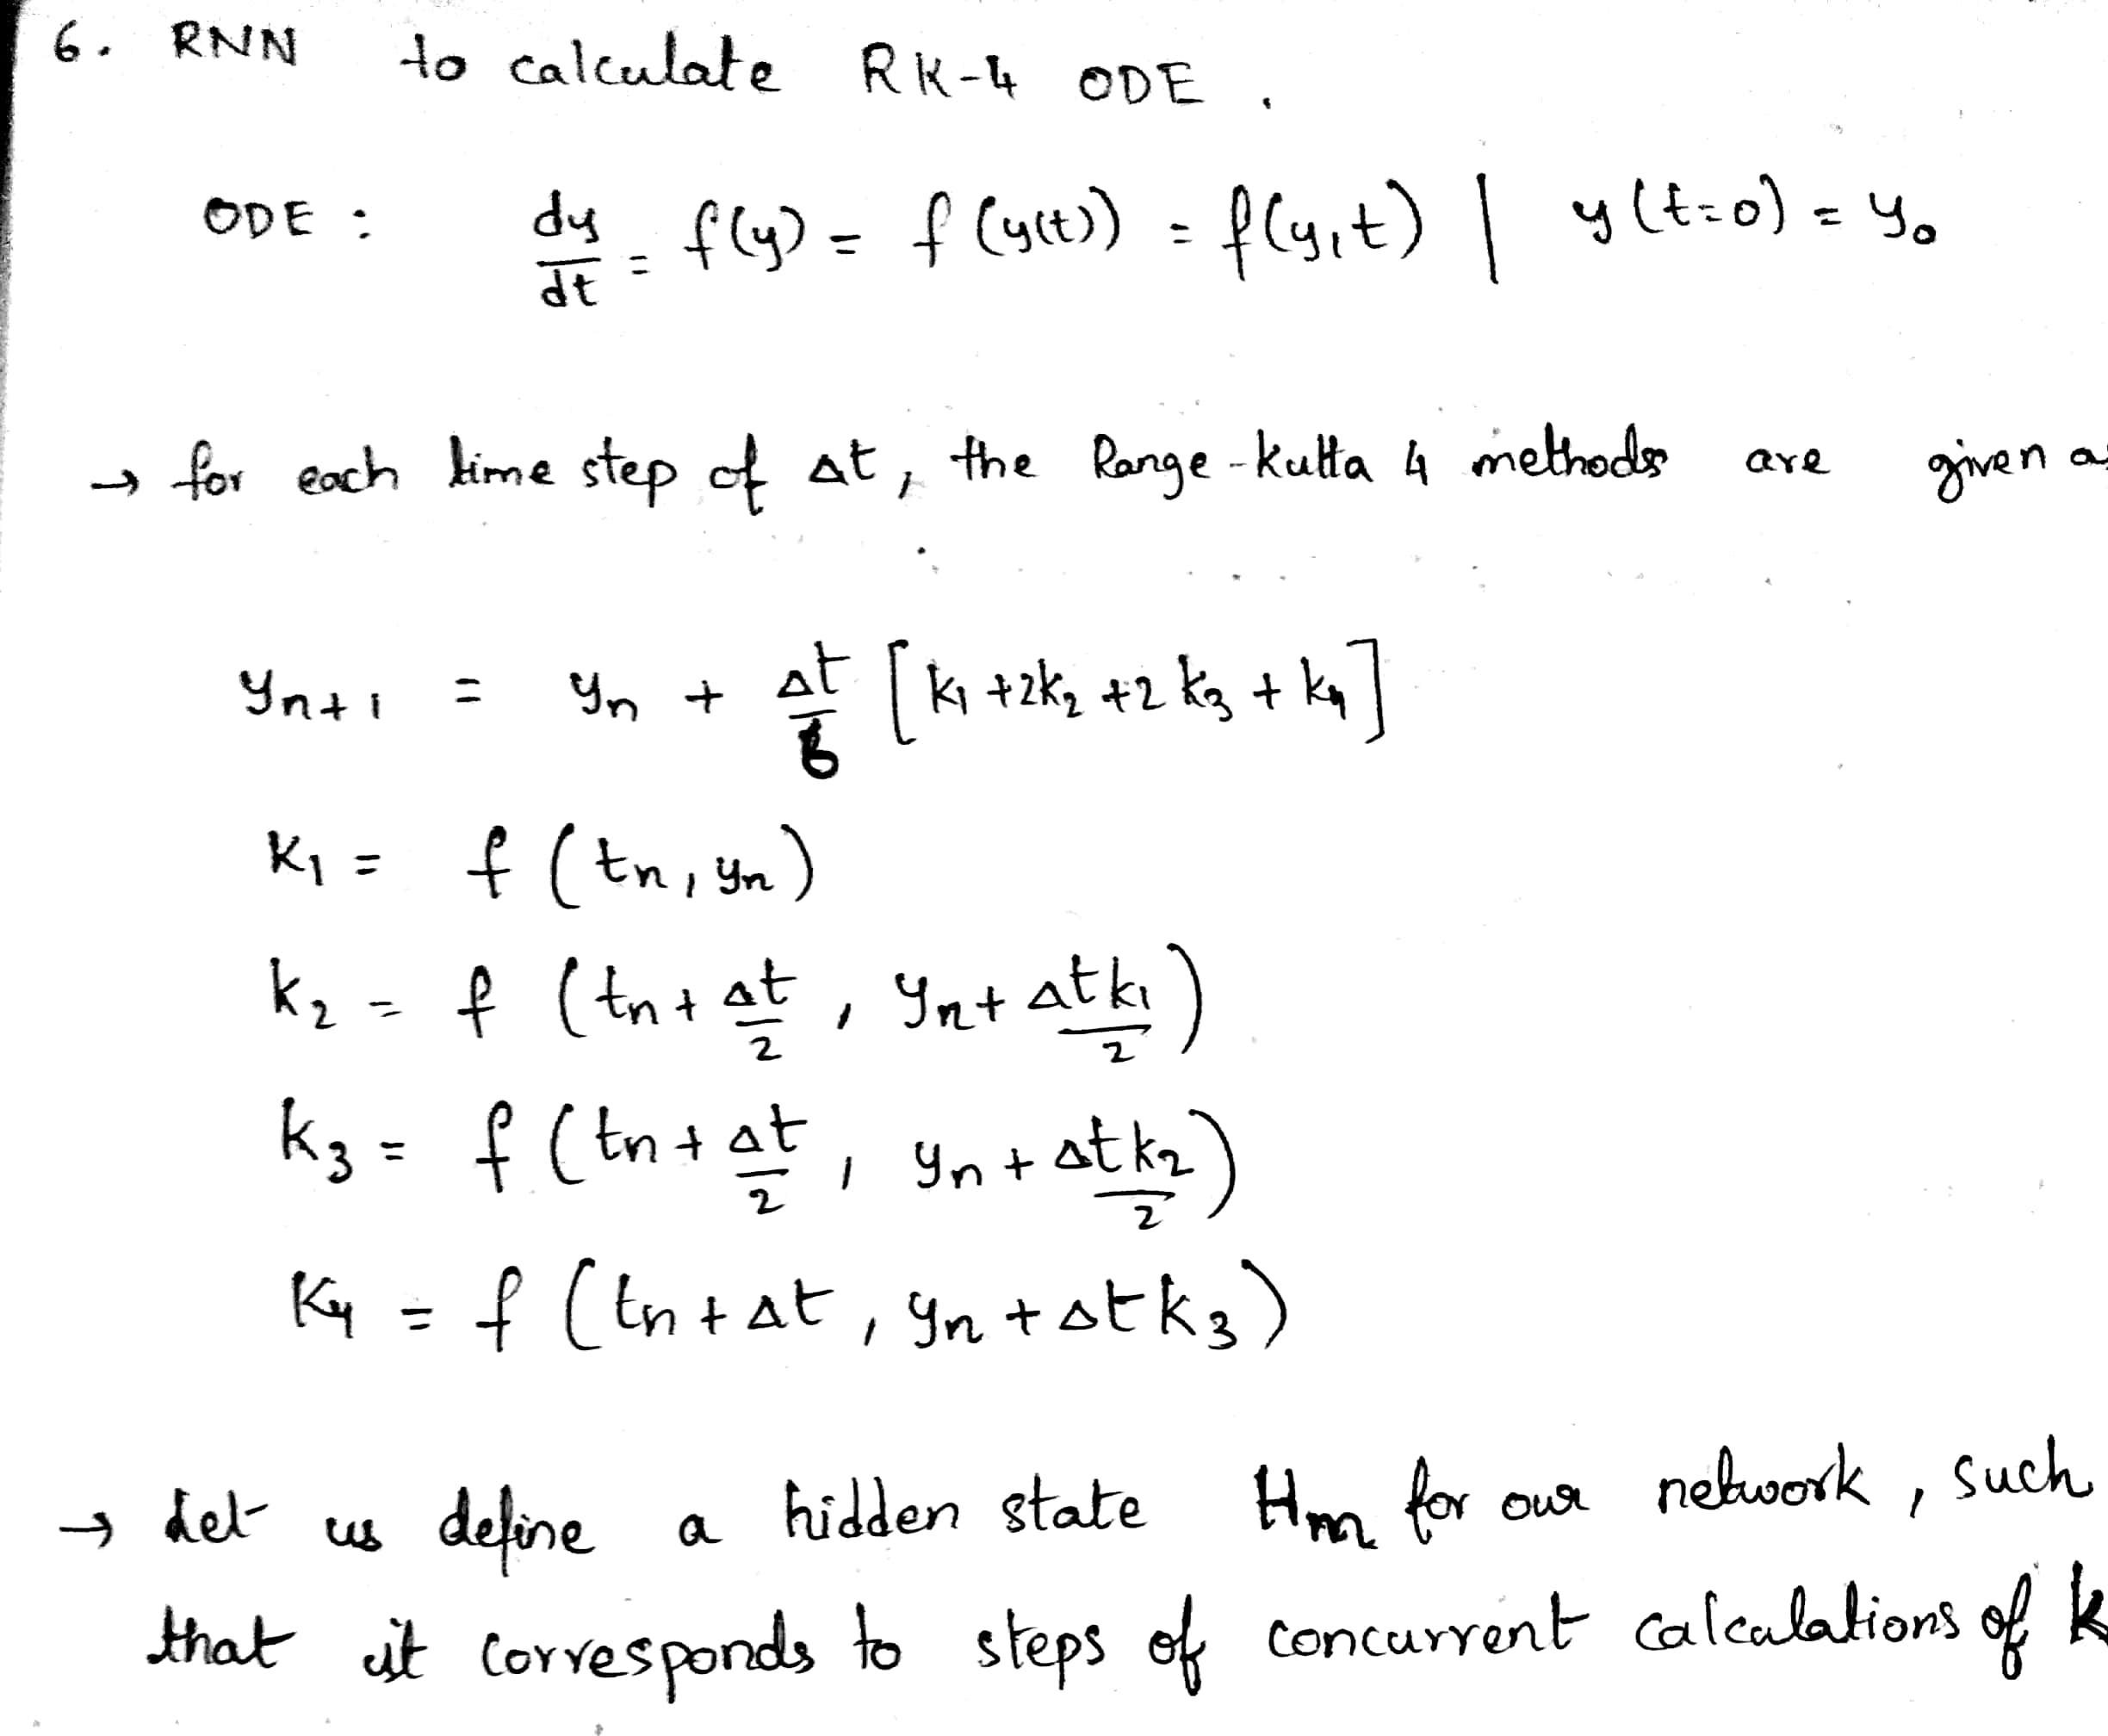 6. RNN to calculate RK-4 ODE.
ODE : dy/dt = f(y) = f(y(t)) = f(y,t) | y(t=0) = y₀
→ for each time step of Δt, the Range-kutta 4 methods are given as
yₙ₊₁ = yₙ + Δt/6 [k₁ +2k₂ +2k₃ + k₄]
K₁ = f(tn, yn)
k₂ = f(tn + Δt/2, yn + Δtk₁/2)
k₃ = f(tn + Δt/2, yn + Δtk₂/2)
K₄ = f(tn + Δt, yn + Δtk₃)
→ Let us define a hidden state Hm for our network, such
that it corresponds to steps of concurrent calculations of k